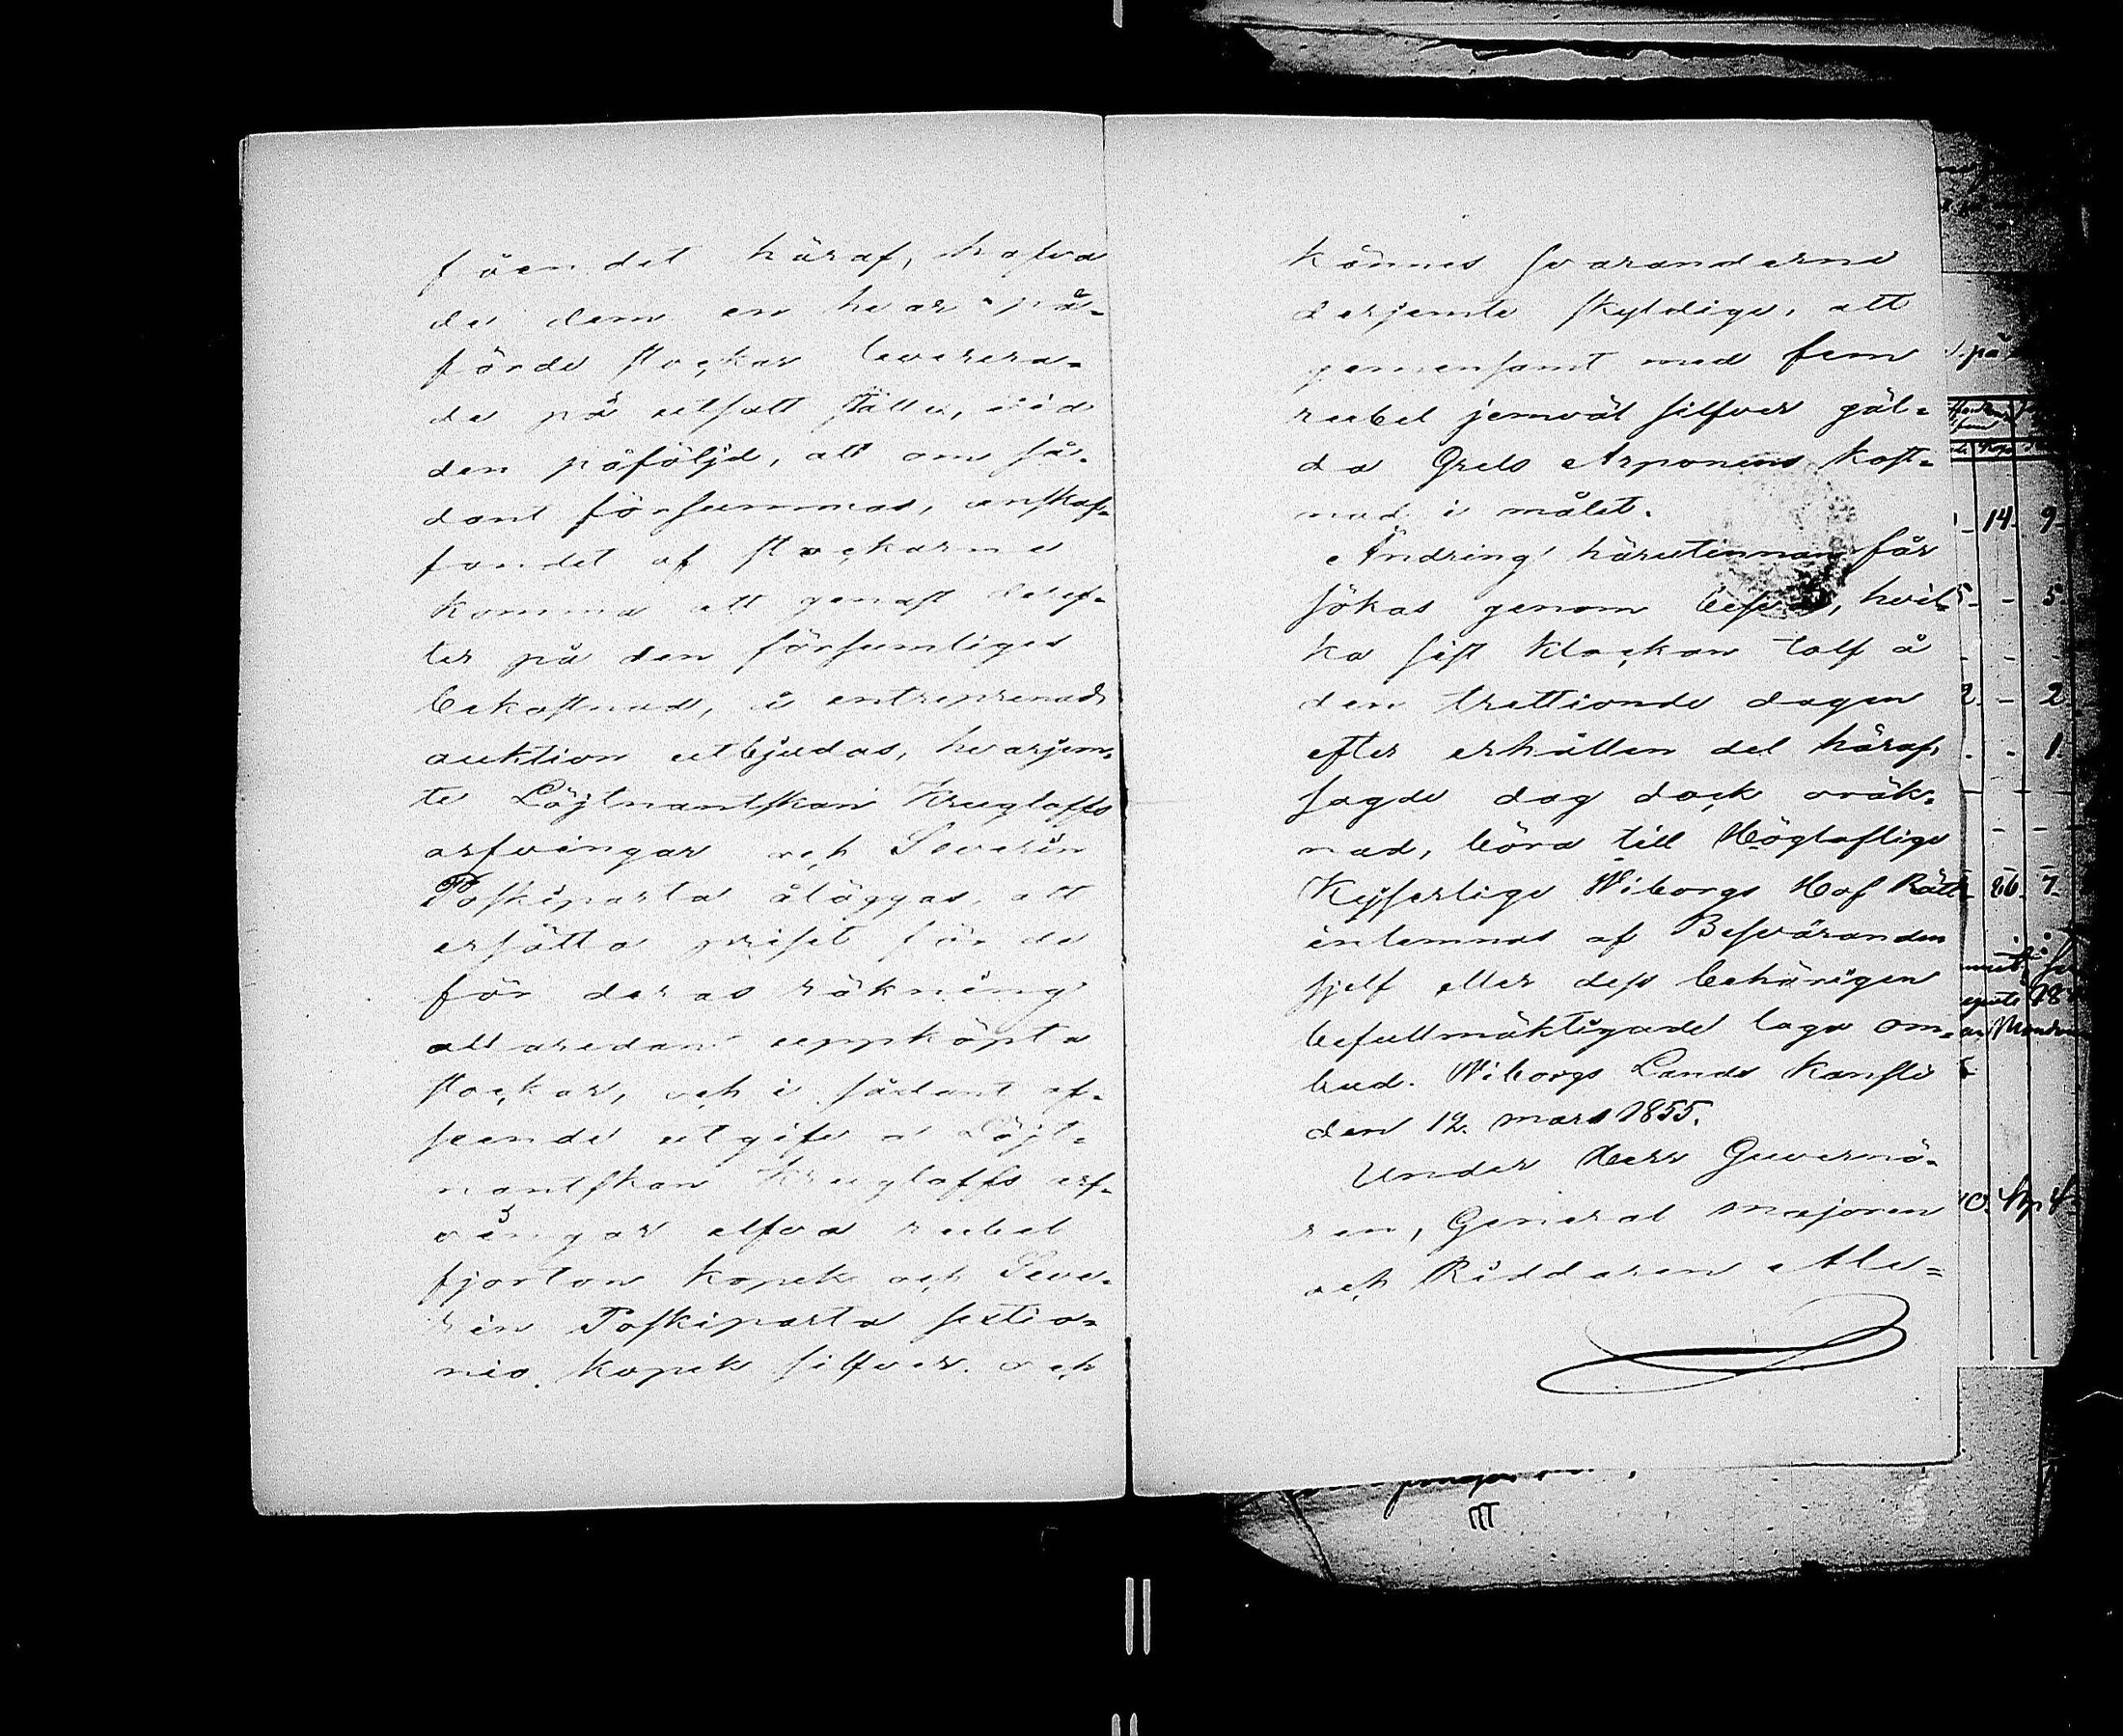 fåendet häraf, hafva
de dem en hvar på-
förde stockar levorera-
de på utsatt ställe, vid
den påföljd, att om så-
dant försummas, anskaf-
fandet af stockarne
komma att genast deref-
ter på den försumliges
bekostnad, å entreprenads
auktion utbjudas, hvarjem-
te Löjtnantskan Krugloffs
arfvingar och Severin
Poskiparta åläggas, att
ersätta priset för de
för deras räkning
allaredan uppköpta
stockar, och i sådant af-
seende utgifva Löjt-
nantskan Krugloffs arf-
vingar elfva rubel
fjorton kopek och Seve-
rin Poskiparta sextio-
nio kopek silfver och
kännes Svaranderne
derjemte skyldige, att
gemensamt med fem
rubel jemväl silfver gäl-
da Grels Arponens kost-
nad i målet.
Ändring härutinnan får
sökas genom besvär, hvil-
ka sist klockan tolf å
den trettionde dagen
efter erhållen del häraf,
sagde dag dock oräk-
nad, böra till Högloflige
Kejserlige Wiborgs Hof Rätt
inlemnas af Besväranden
sjelf eller dess behörigen
befullmäktigade laga om-
bud. Wiborgs Lands Kansli
den 12. mars 1855.
Under Herr Guvernö-
ren, General Majoren
och Riddaren Ale-